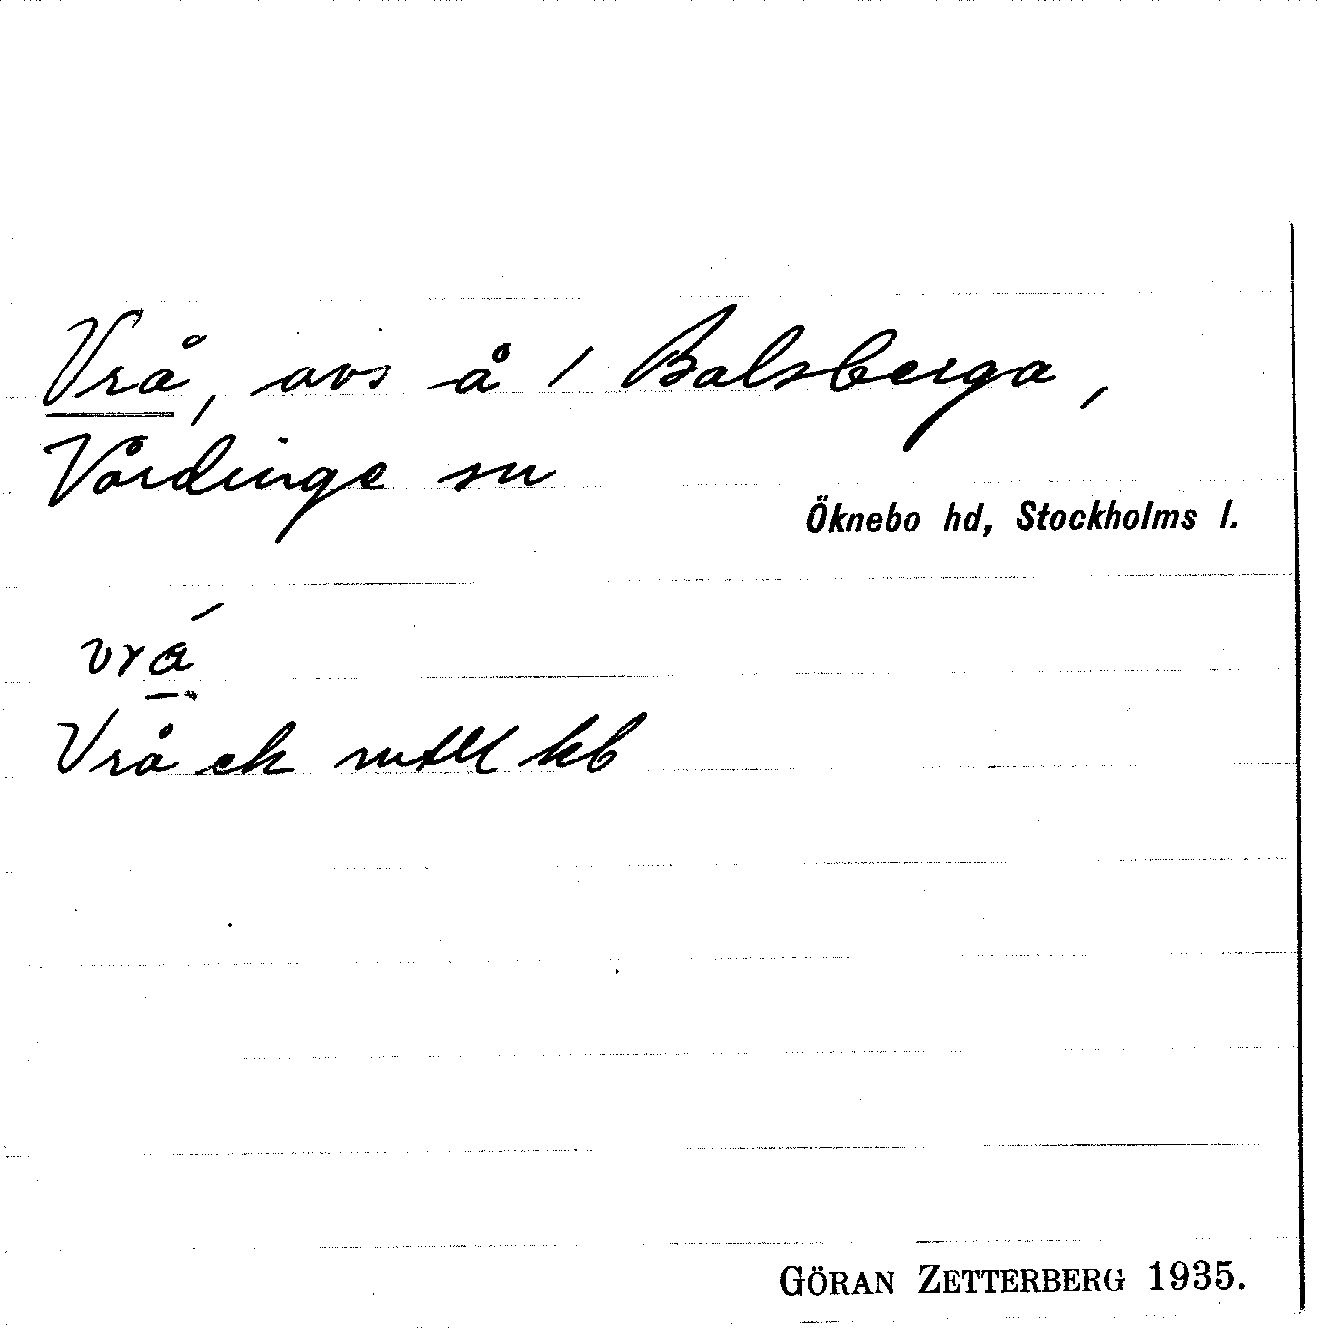 Vrå, avs å 1 Balsberga,
Vårdinge sn
Öknebo hd, Stockholms l.
vrá
Vrå ek kb
GÖRAN ZETTERBERG 1935.